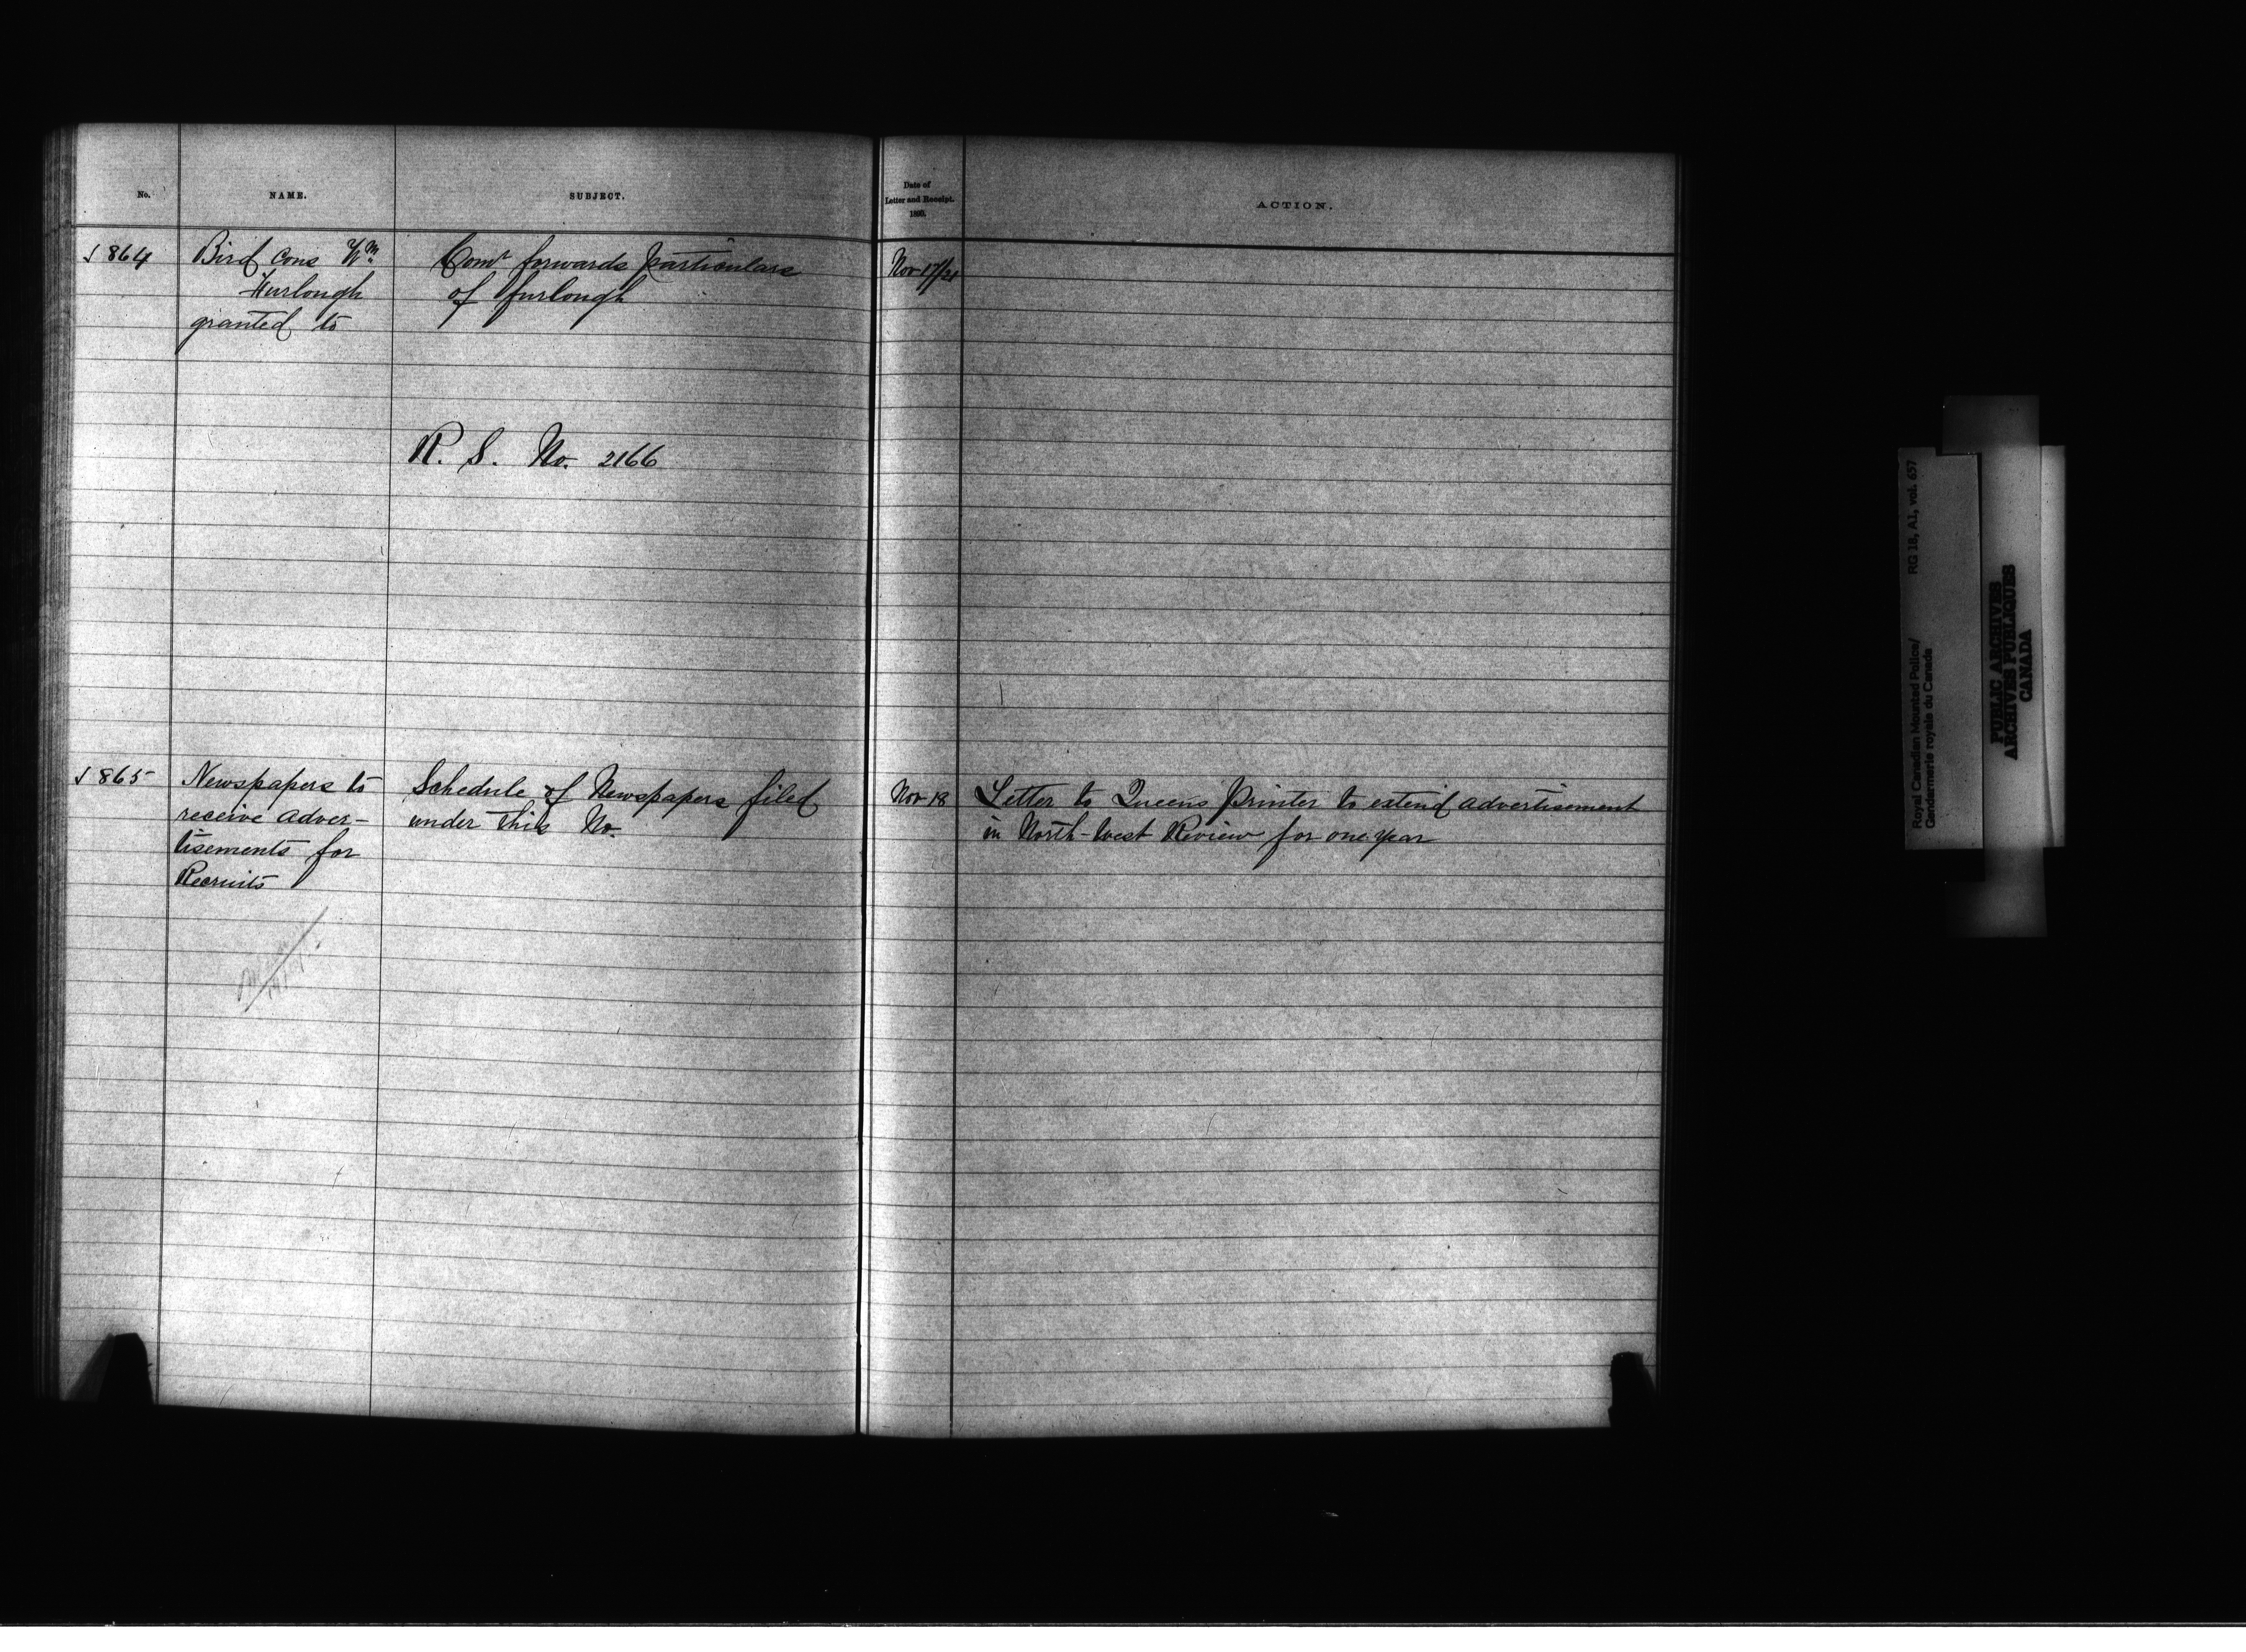 No.
NAME.
SUBJECT.
Date of
Letter and Receipt.
1890.
ACTION.
864
Bird Cons Wm
Furlough
granted to
Comr forwards particulars
of furlough
Nov 17/21
R. S. No. 2166
865
Newspapers to
receive adver-
tisements for
Recruits
Schedule of Newspapers filed
under this No.
Nov 18
Letter to Queens Printer to extend advertisement
in North-West Review for one year
RG 18, A1, vol. 657
Royal Canadian Mounted Police/
Gendarmerie royale du Canada
PUBLIC ARCHIVES
ARCHIVES PUBLIQUES
CANADA